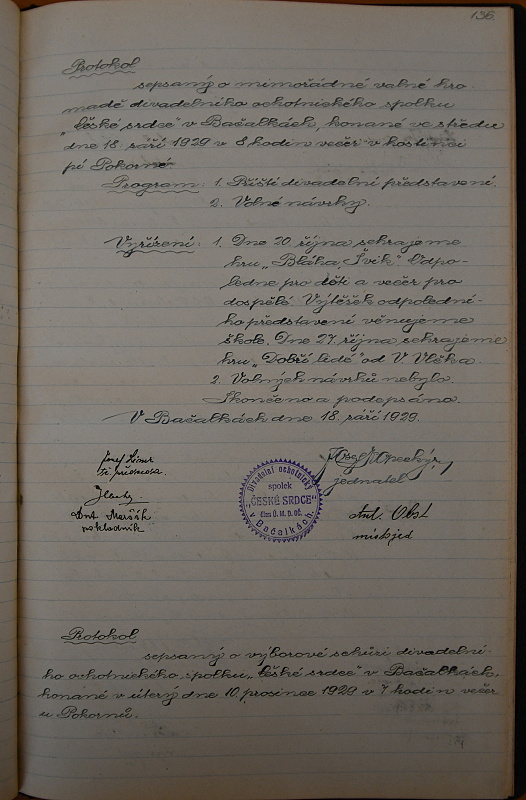 136.
Protokol
sepsaný o mimořádné valné hro-
madě divadelního ochotnického spolku
„České srdce" v Bačalkách, konané ve středu
dne 18. září 1929 v 8 hodin večer v hostinci
pí Pokorné
Program: 1. Příští divadelní představení.
2. Volné návrhy.
Vyřízení: 1. Dne 20. října sehrajeme
hru „Bláha, Švik" Odpo-
ledne pro děti a večer pro
dospělé Výtěšek odpoledni-
ho představení věnujeme
škole. Dne 27. října sehrajeme
hru „Dobří lidé" od V. Vlčka.
2. Volných návrhů nebylo.
Skončeno a podepsáno.
V Bačalkách dne 18. září 1929.
Josef
jednatel
Ant. Maršík
pokladník
Ant. Obst
místojed
Divadelní ochotnický
spolek
"ČESKÉ SRDCE"
člen Ú. M. D. OČ.
v Bačalkách.
Protokol
sepsaný o výborové schůzi divadelní-
ho ochotnického spolku „České srdce" v Bačalkách,
konané v úterý dne 10. prosince 1929 v 7 hodin večer
u Pokornů.